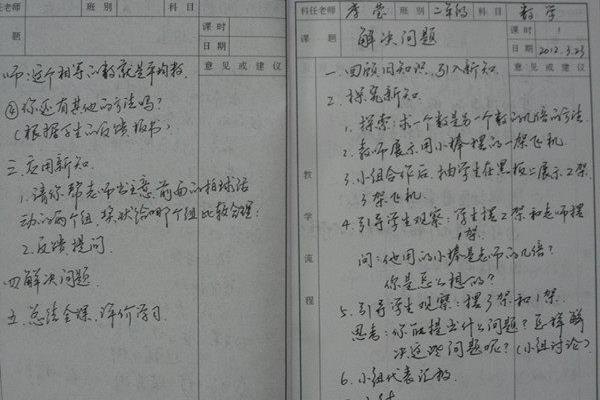 任老师
班 别
科 目
课时
题
日期
意 见 或 建 议
师:这个相等的数就是平均数.
④你还有其他的方法吗?
(根据学生的反馈板书)
三.应用新知.
1.请你帮老师出主意.前面的拍球活
动的两个组,奖状给哪个组比较合理?
2.反馈提问
四解决问题.
五.总结全课,评价学习.
科任老师
班 别
二年级
科 目
数学
课时
1
课 题
解决问题
日期
2012.3.23
意 见 或 建 议
教
学
流
程
一.回顾旧知识,引入新知.
2.探究新知.
1.探索:求一个数是另一个数的几倍的方法
2.教师展示用小棒摆的一架飞机.
3.小组合作后,抽学生在黑板上展示2架.
3架飞机.
4.引导学生观察:学生摆2架和老师摆
1架.
问:他用的小棒是老师的几倍?
你是怎么想的?
5.引导学生观察:摆3架和1架.
思考:你能提出什么问题?怎样解
决这些问题呢?(小组讨论)
6.小组代表汇报.